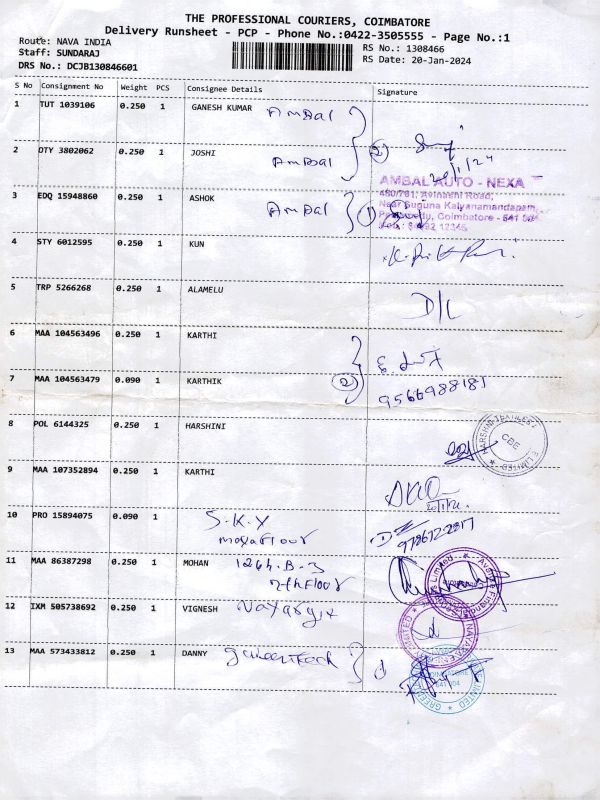 THE PROFESSIONAL COURIERS, COIMBATORE
Delivery Runsheet - PCP - Phone No.:0422-3505555 - Page No.:1
Route: NAVA INDIA
Staff: SUNDARAJ
DRS No.: DCJB130846601
RS No.: 1308466
RS Date: 20-Jan-2024
S No Consignment No Weight PCS Consignee Details Signature
1 TUT 1039106 0.250 1 GANESH KUMAR Ambal
2 DTY 3802062 0.250 1 JOSHI Ambal (2)
20/1/24
3 EDQ 15948860 0.250 1 ASHOK Ambal (1)
AMBAL AUTO - NEXA
Avinashi Road,
Near Suguna Kalyanamandapam,
Coimbatore
4 STY 6012595 0.250 1 KUN
5 TRP 5266268 0.250 1 ALAMELU D/L
6 MAA 104563496 0.250 1 KARTHI
7 MAA 104563479 0.090 1 KARTHIK (2)
9566988181
8 POL 6144325 0.250 1 HARSHINI
HARSHNI TEXTILES LIMITED
CBE
9 MAA 107352894 0.250 1 KARTHI
10 PRO 15894075 0.090 1 S.K.Y
11 MAA 86387298 0.250 1 MOHAN 1264.B-3
12 IXM 505738692 0.250 1 VIGNESH
13 MAA 573433812 0.250 1 DANNY